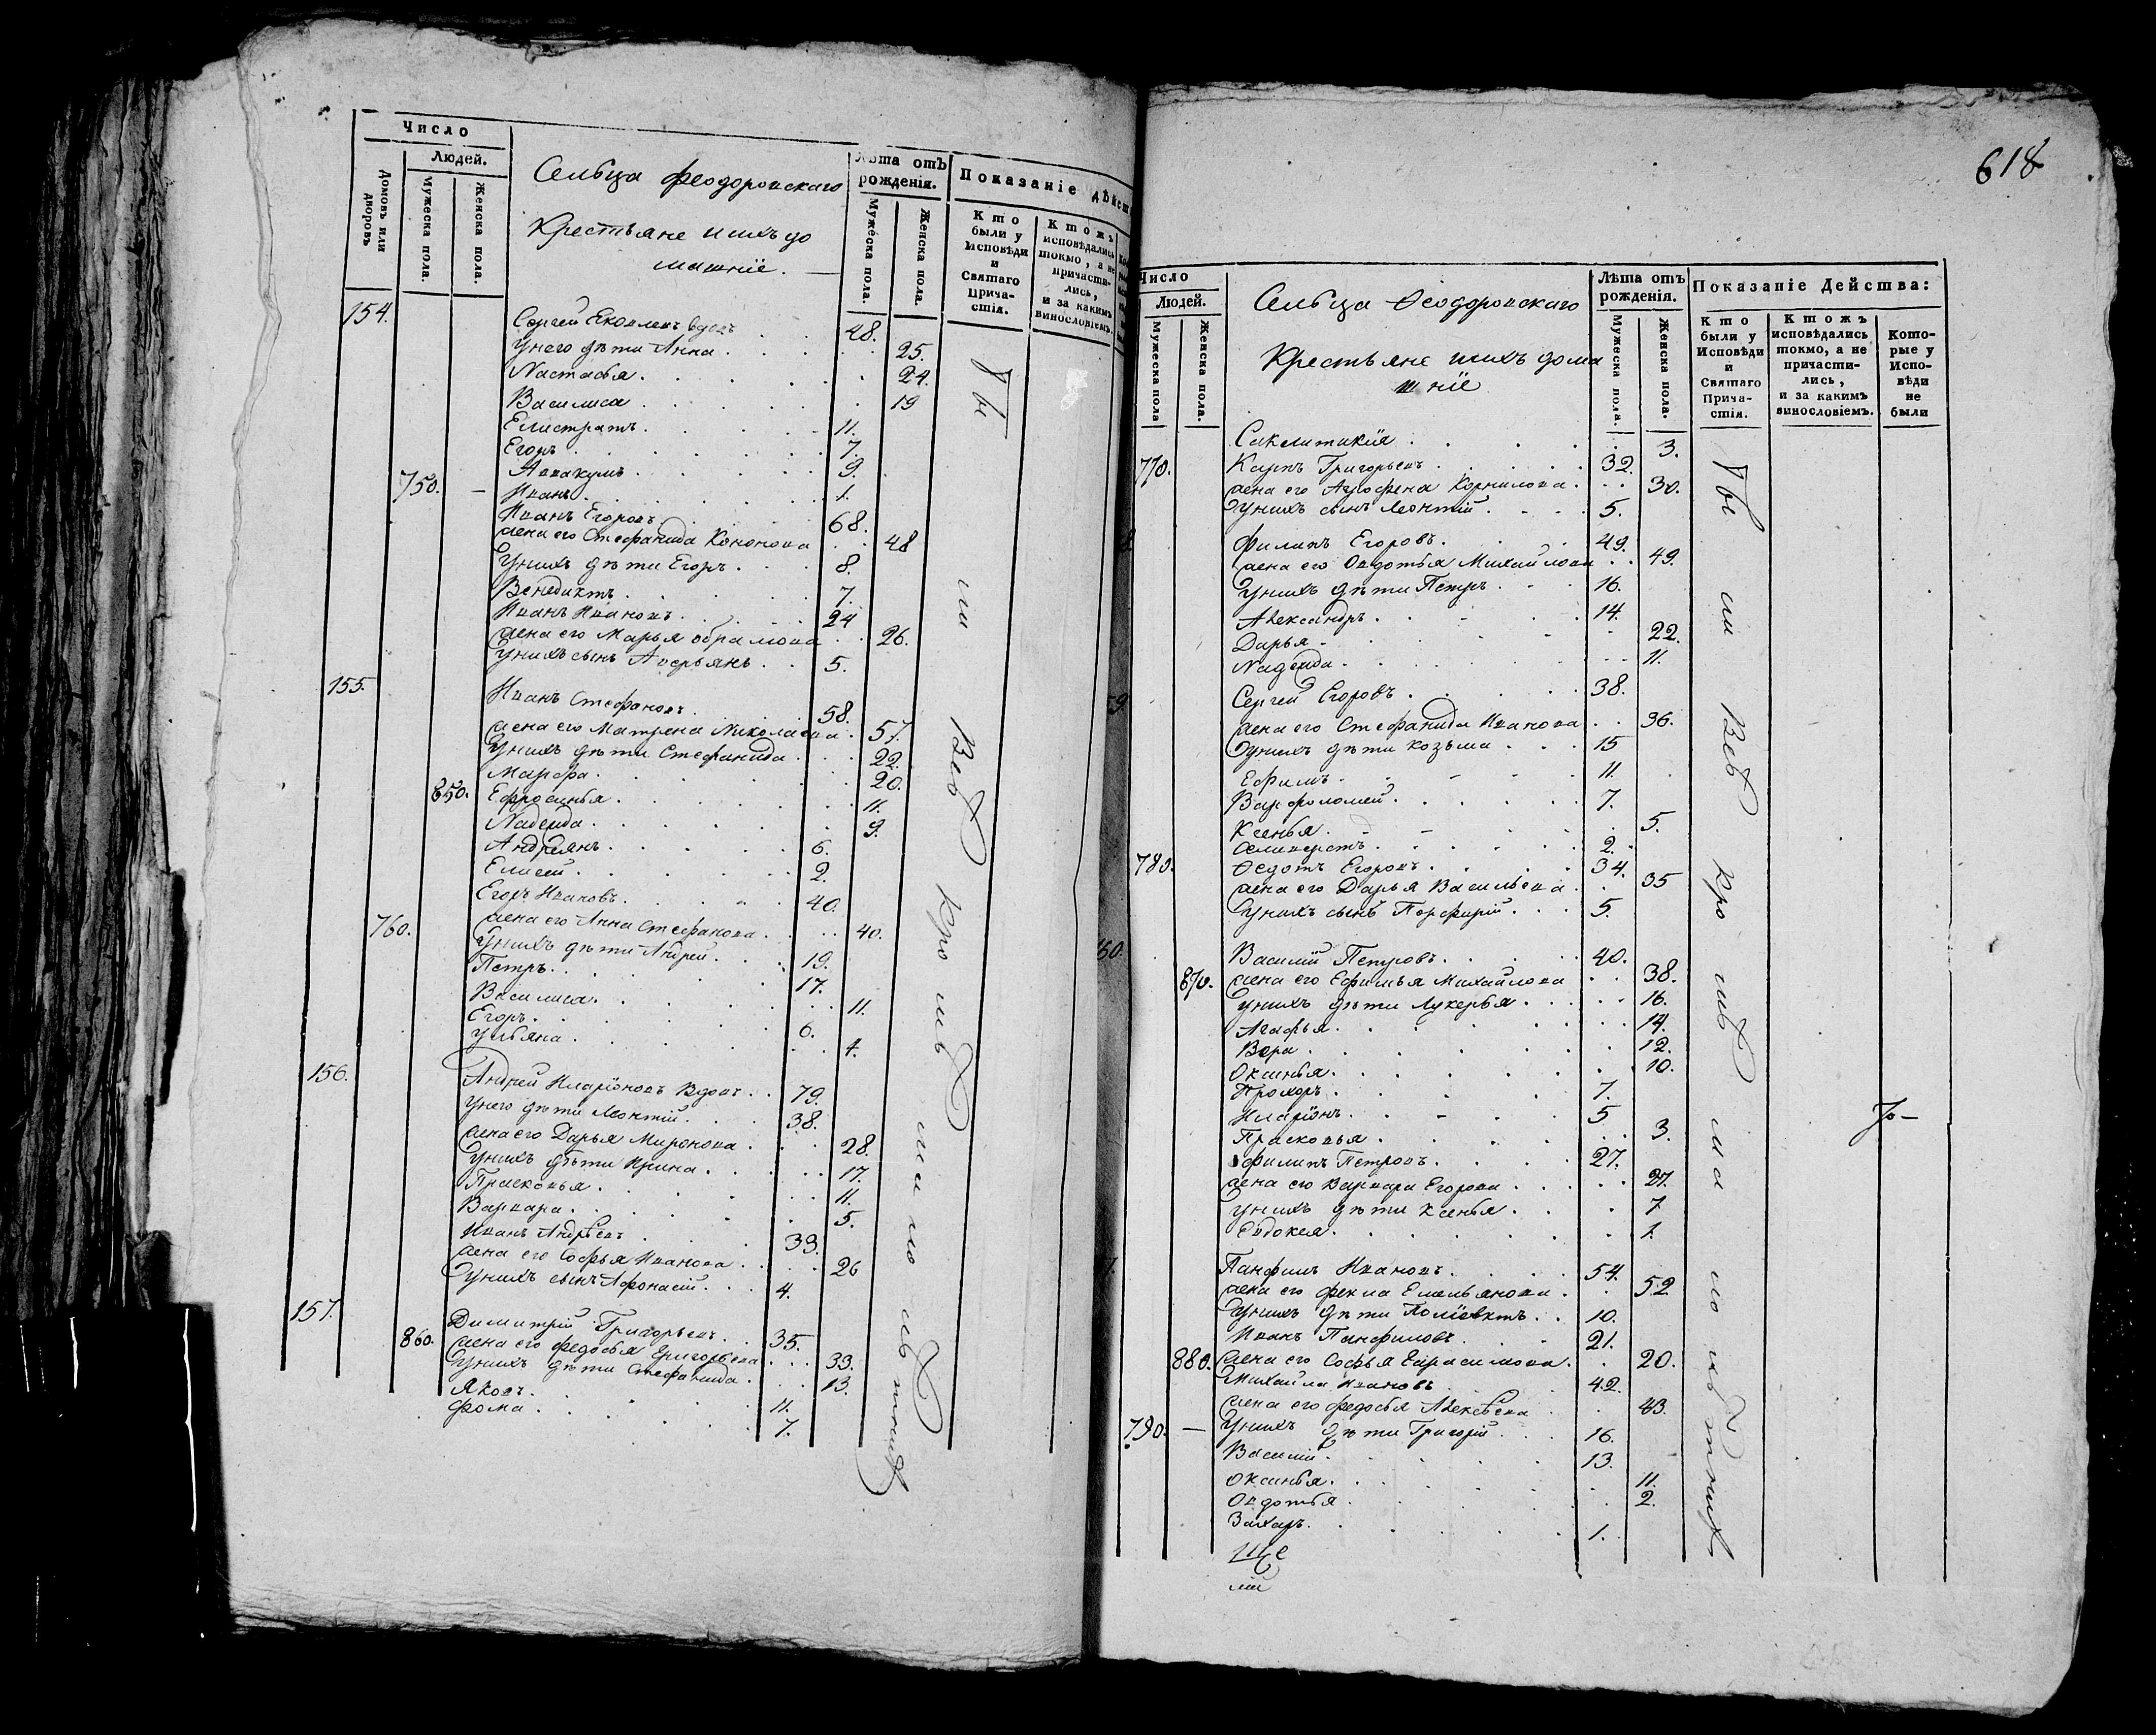 Число
Людей.
Домовъ или дворовъ
Мужеска пола.
Женска пола.
Сельца Феодоровскаго
Крестьяне и ихъ до
машніе. —
Лѣта отъ рожденія.
Мужеска пола.
Женска пола.
Показаніе дѣйст
Кто были у Исповѣди и Святаго Прича-стія.
Ктожъ исповѣдались токмо, а не причасти-лись, и за какимъ винословіемъ.
154. Сергей Яковлевъ вдовъ 48.
У него дѣти Анна 25.
Настасья 24.
Василиса 19
Елистратъ 11.
Егоръ 7.
Аввакумъ 9.
750. — Иванъ 1.
Иванъ Егоровъ 68.
жена его Стефанида Кононова 48
У нихъ дѣти Егоръ 8.
Венедиктъ 7.
Иванъ Ивановъ 24
жена его Марья Обрамова 26.
У нихъ сынъ Аверьянъ 5.
155. Иванъ Стефановъ 58.
жена его Матрена Николаева 57.
У нихъ дѣти Стефанида 22.
Марфа 20.
850. Ефросинья 11.
Надежда 9.
Андреянъ 6.
Елисей 2.
Егоръ Ивановъ 40.
жена его Анна Стефанова 40.
760. У нихъ дѣти Андрей 19.
Петръ 17.
Василиса 11.
Егоръ 6.
Ульяна 1.
156. Андрей Иларіоновъ вдовъ 79.
У него дѣти Леонтій 38.
жена его Дарья Миронова 28.
У нихъ дѣти Ирина 17.
Прасковья 11.
Варвара 5.
Иванъ Андрѣевъ 33.
жена его Софья Иванова 26
У нихъ сынъ Афонасій 4.
157. Димитрій Григорьевъ 35.
860. жена его Федосья Григорьева 33.
У нихъ дѣти Стефанида 13.
Яковъ 11.
Фома 7.
618
Число
Людей.
Мужеска пола
Женска пола.
Сельца Ѳеодоровскаго
Крестьяне и ихъ дома
шніе
Лѣта отъ рожденія.
Мужеска пола.
Женска пола.
Показаніе Дейсшва:
Кто были у Исповѣди и Святаго Прича-стія.
Ктожъ исповѣдались токмо, а не причасти-лись, и за какимъ винословіемъ.
Кото-рые у Испо-вѣди не были
Секлитикія 3.
770. Карпъ Григорьевъ 32.
жена его Агрофена Корнилова 30.
У нихъ сынъ Леонтій 5.
Филипъ Егоровъ 49.
жена его Овдотья Михайлова 49.
У нихъ дѣти Петръ 16.
Александръ 14.
Дарья 22.
Надежда 11.
Сергей Егоровъ 38.
жена его Стефанида Иванова 36.
У нихъ дѣти Козьма 15
Ефимъ 11.
Варфоломей 7.
Ксенья 5.
Селиверстъ 2.
780. Ѳедотъ Егоровъ 34.
жена его Дарья Васильева 35
У нихъ сынъ Порфирій 5.
Василій Петровъ 40.
870. жена его Ефимья Михайлова 38.
У нихъ дѣти Лукерья 16.
Агафья 14.
Вера 12.
Оксинья 10.
Прохоръ 7.
Иларіонъ 5
Прасковья 3.
Филипъ Петровъ 27.
жена его Варвара Егорова 27.
У нихъ дѣти Ксенья 7
Евдокея 1.
Панфилъ Ивановъ 54.
жена его Фекла Емельянова 52
У нихъ дѣти Поліевктъ 10.
Иванъ Панфиловъ 21.
880. жена его Софья Герасимова 20.
Михайла Ивановъ 42.
жена его Федосья Алексѣева 43.
790. — У нихъ дѣти Григорій 16.
Василій 13.
Оксинья 11.
Овдотья 2.
Захаръ 1.